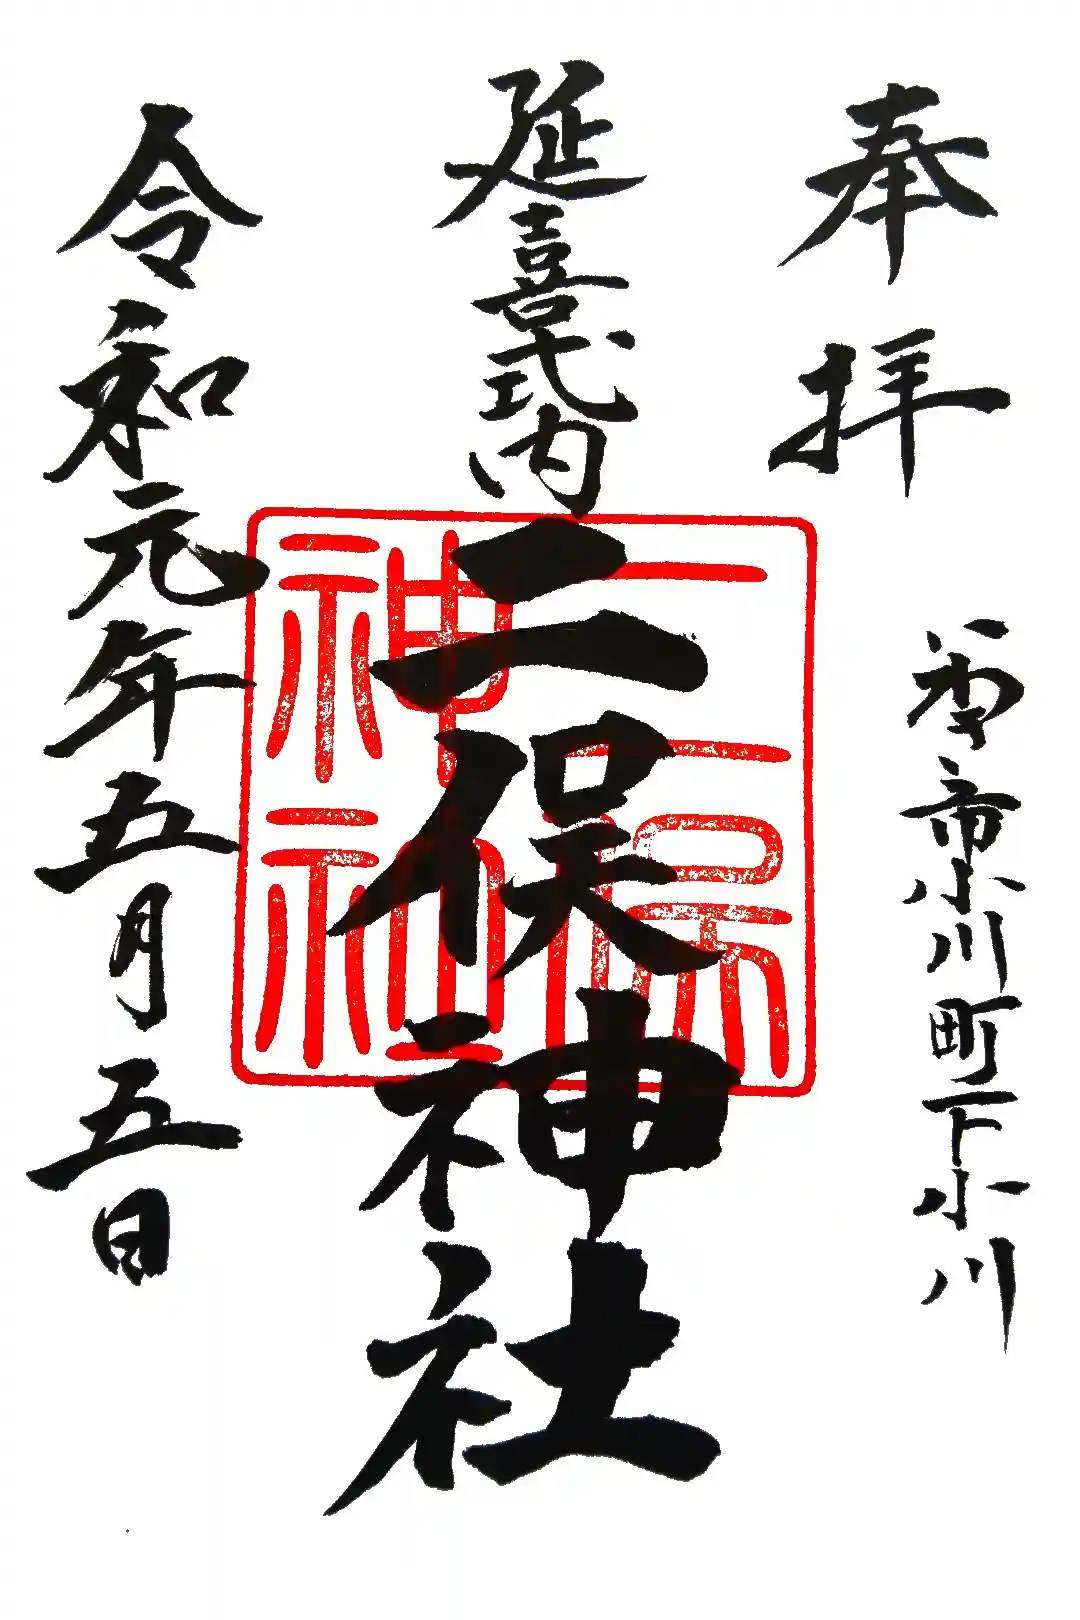 奉拝
いわき市小川町下小川
延喜式内
二俣神社
令和元年五月五日
二俣
神社